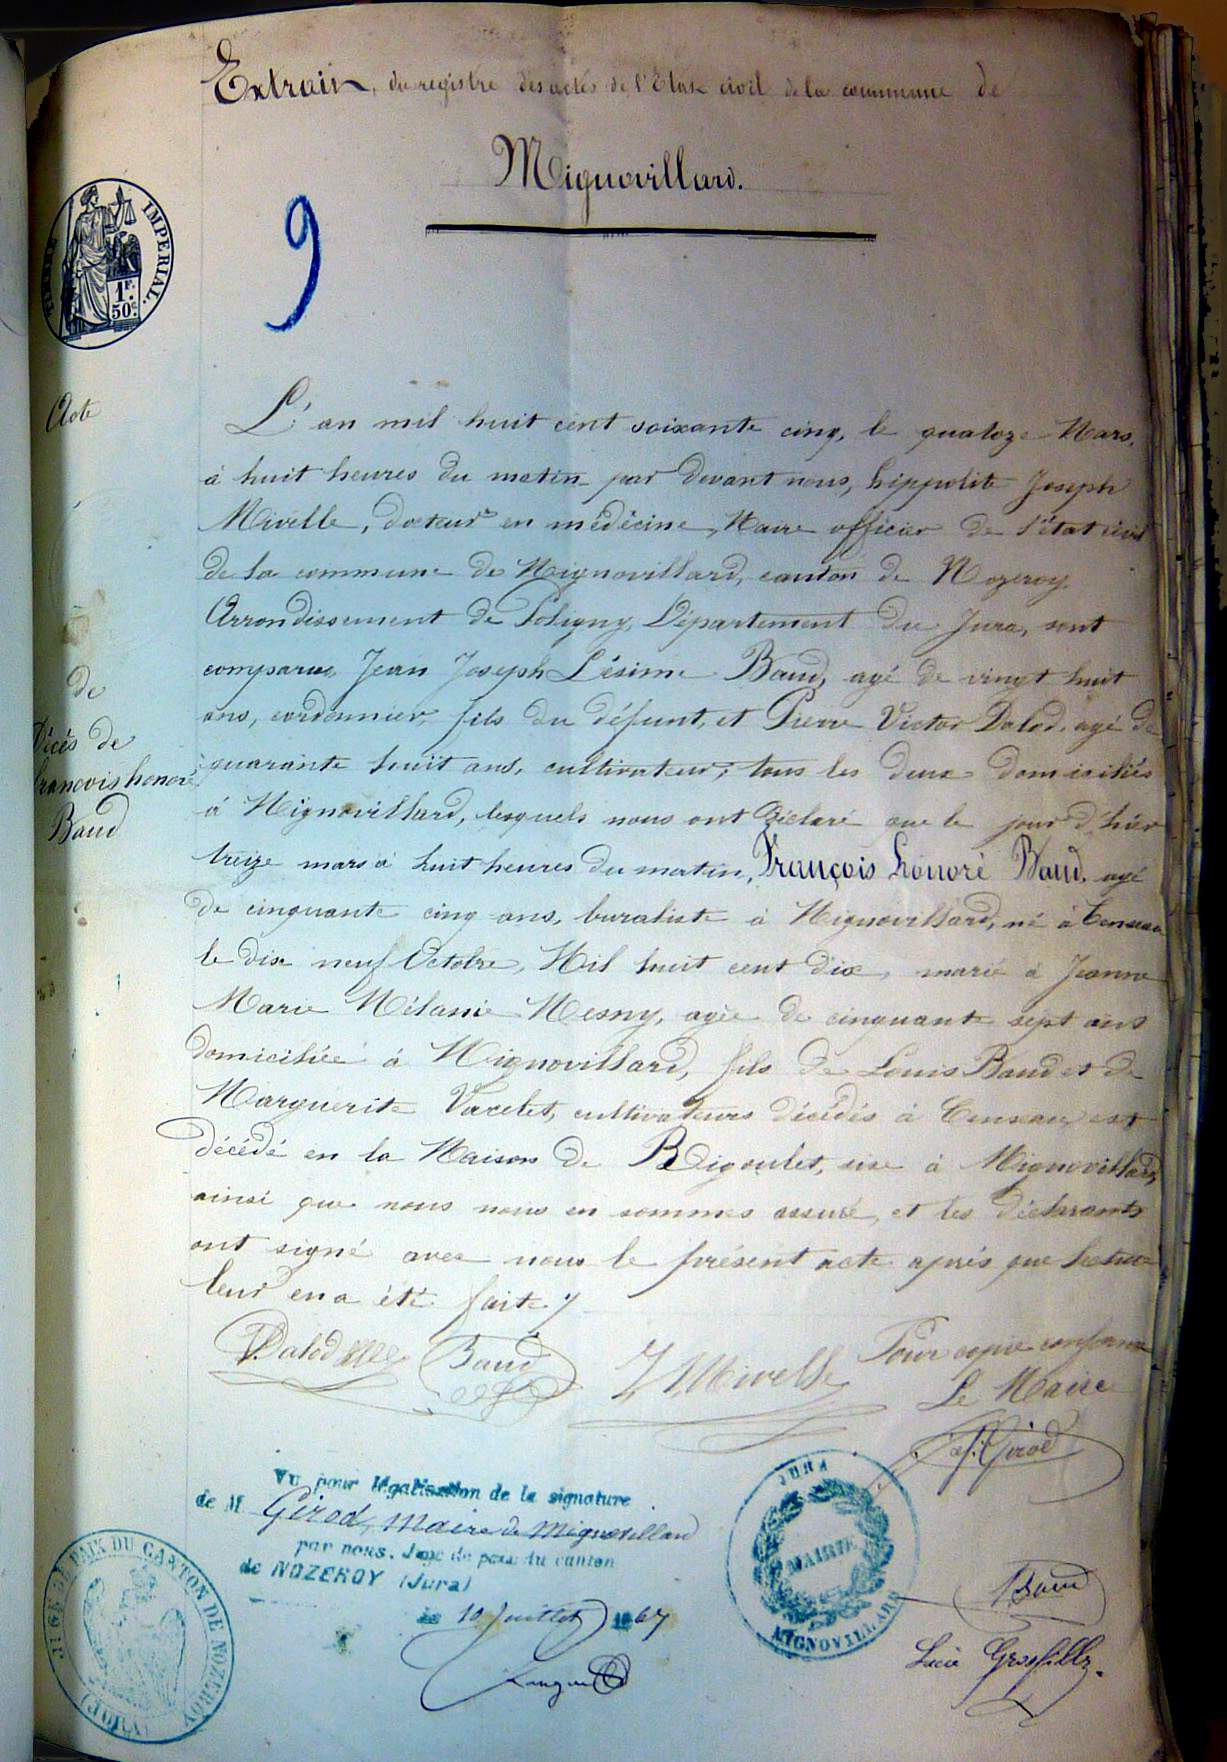 Extrait, du registre des actes de l'Etat civil de la commune de
Mignovillard.
TIMBRE IMPERIAL.
1F.
50c.
9
Acte
de
Décès de
François honoré
Baud
L'an mil huit cent soixante cinq, le quatoze Mars,
à huit heures du matin par devant nous, hippolite Joseph
Mivelle, docteur en médécine, Maire officier de l'état civil
de la commune de Mignovillard, canton de Nozeroy,
Arrondissement de Poligny, Département du Jura, sont
comparus, Jean Joseph Lésime Baud, agé de vingt huit
ans, cordonnier, fils du défunt, et Pierre Victor Dalod, agé de
quarante huit ans, cultivateur; tous les deux domiciliés
à Mignovillard, lesquels nous ont déclaré que le jour d'hier
treize mars à huit heures du matin, François honoré Baud, agé
de cinquante cinq ans, buraliste à Mignovillard, né à Censeau
le dix neuf Octobre, Mil huit cent dix, marié à Jeanne
Marie Mélanie Mesny, agée de cinquante sept ans
domiciliée à Mignovillard, fils de Louis Baud et de
Marguerite Vacelet, cultivateurs décédés à Censeau est
décédé en la Maison de Bigoulet, sise à Mignovillard,
ainsi que nous nous en sommes assuré, et les déclarants
ont signé avec nous le présent acte après que lecture
leur en a été faite /
Dalod Baud J Mivelle Pour copie conforme
Le Maire
Girod
Vu pour légalisation de la signature
de M Girod, maire de Mignovillard
par nous, Juge de paix du canton
de NOZEROY (Jura)
le 10 Juillet 1867
JUGE DE PAIX DU CANTON DE NOZEROY (JURA)
JURA
MAIRIE
MIGNOVILLARD
Baud
Lucie Grosfillez.